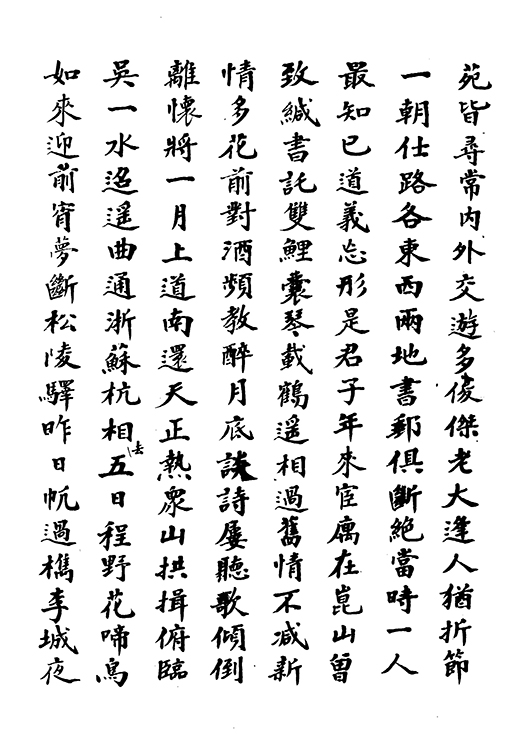 苑皆尋常内外交遊多俊傑老大逢人猶折節
一朝仕路各東西兩地書郵俱斷絕當時一人
最知已道義忘形是君子年來宦庽在崑山曽
致緘書託雙鯉囊琴載鶴遥相過舊情不减新
情多花前對酒頻教醉月底談詩屢聽歌傾倒
離懷將一月上道南還天正熱衆山拱揖俯臨
吳一水迢遥曲通浙蘇杭相去五日程野花啼鳥
如來迎前宵夢斷松陵驛昨日帆過檇李城夜